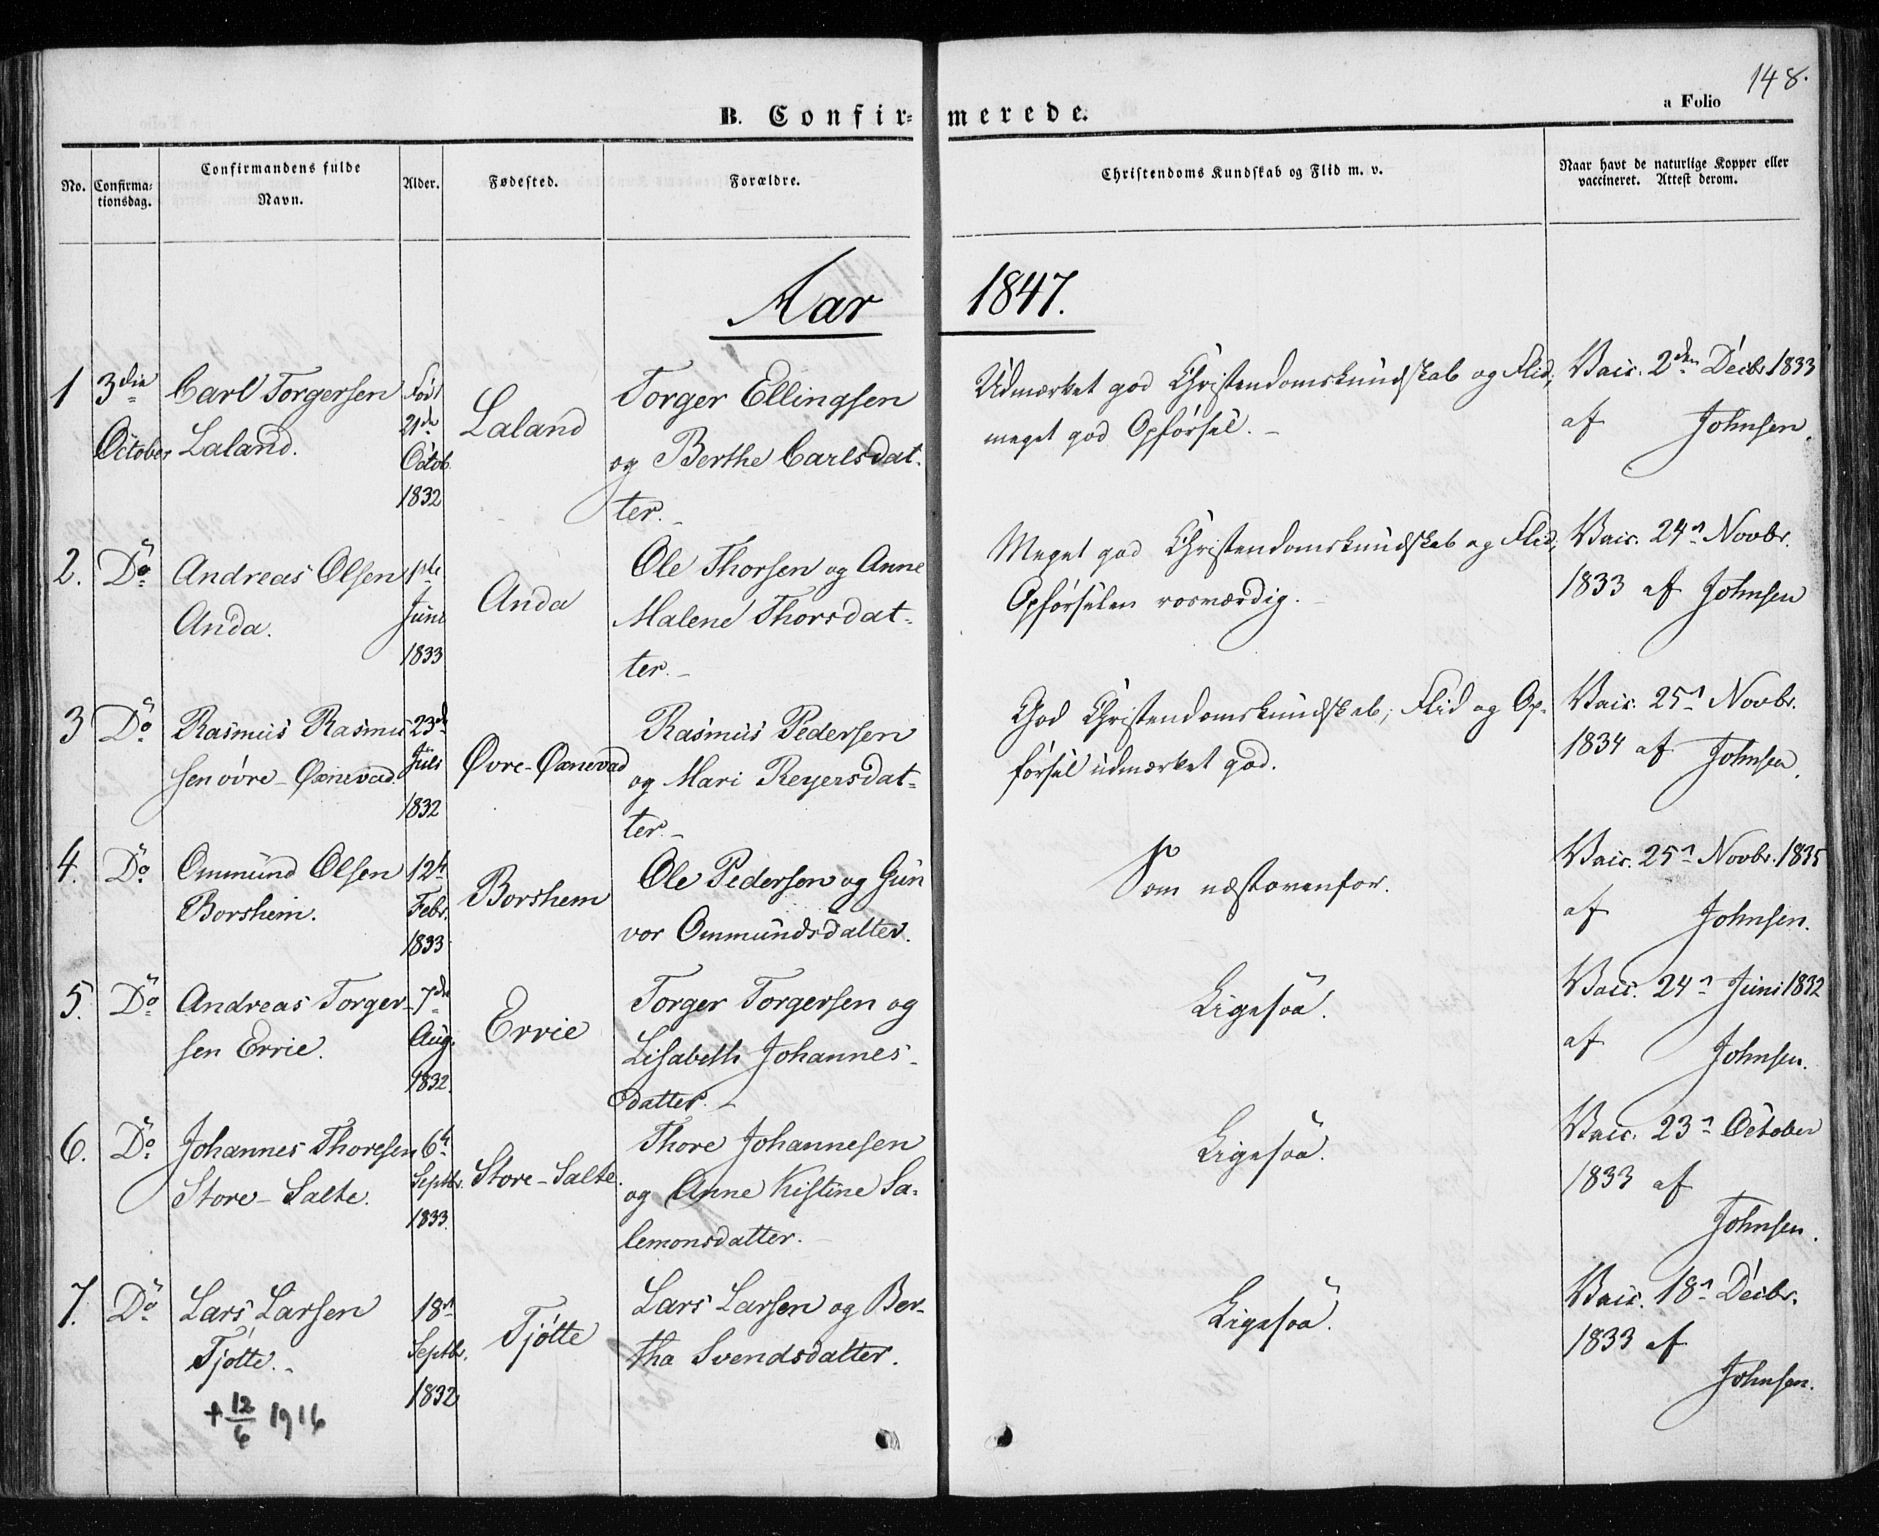 148.
a Folio
B. Confir= merede.
No.
Confirma=
tionsdag.
Confirmandens fulde
Navn.
Alder.
Fødested.
Forældre.
Christendoms Kundskab og Flid m. v.
Naar havt de naturlige Kopper eller
vaccineret. Attest derom.
Aar 1847.
1
3die
October
Carl Torgersen
Laland.
Født
21de
Octob.
1832
Laland
Torger Ellingsen
og Berthe Carlsdat-
ter.
Udmærket god Christendomskundskab og Flid,
meget god Opførsel.
Vaic. 2den Decbr 1833
af Johnsen.
2.
Do
Andreas Olsen
Anda.
1ste
Juni
1833
Anda
Ole Thorsen og Anne
Malene Thorsdat-
ter.
Meget god Christendomskundskab og Flid,
Opførselen rosværdig.
Vaic. 24n Novbr.
1833 af Johnsen
3
Do
Rasmus Rasmu
sen øvre-Øxnevad
23de
Juli
1832
Øvre-Øxnevad
Rasmus Pedersen
og Mari Reyersdat-
ter.
God Christendomskundskab, Flid og Op-
førsel udmærket god.
Vaic. 25n Novbr.
1834 af Johnsen.
4.
Do
Ommund Olsen
Borshem.
12te
Febr.
1833
Borshem
Ole Pedersen og Gun
vor Ommundsdatter.
Som næstovenfor.
Vaic. 25n Novbr. 1835
af Johnsen.
5.
Do
Andreas Torger-
sen Errie.
7de
Aug.
1832.
Errie
Torger Torgersen og
Lisabeth Johannes-
datter.
Ligesaa.
Vaic. 24n Juni 1832
af Johnsen.
6.
Do
Johannes Thoresen
Store-Salte.
6te
Septbr.
1833.
Store-Salte.
Thore Johannesen
og Anne Kistine Sa-
lemonsdatter.
Ligesaa.
Vaic. 23n October
1833 af
Johnsen.
7.
Do
Lars Larsen
Tjøtte.
+ 12/6 1916
18n
Septbr.
1832
Tjøtte
Lars Larsen og Ber-
tha Svendsdatter.
Ligesaa.
Vaic. 18n Decbr.
1833 af
Johnsen.